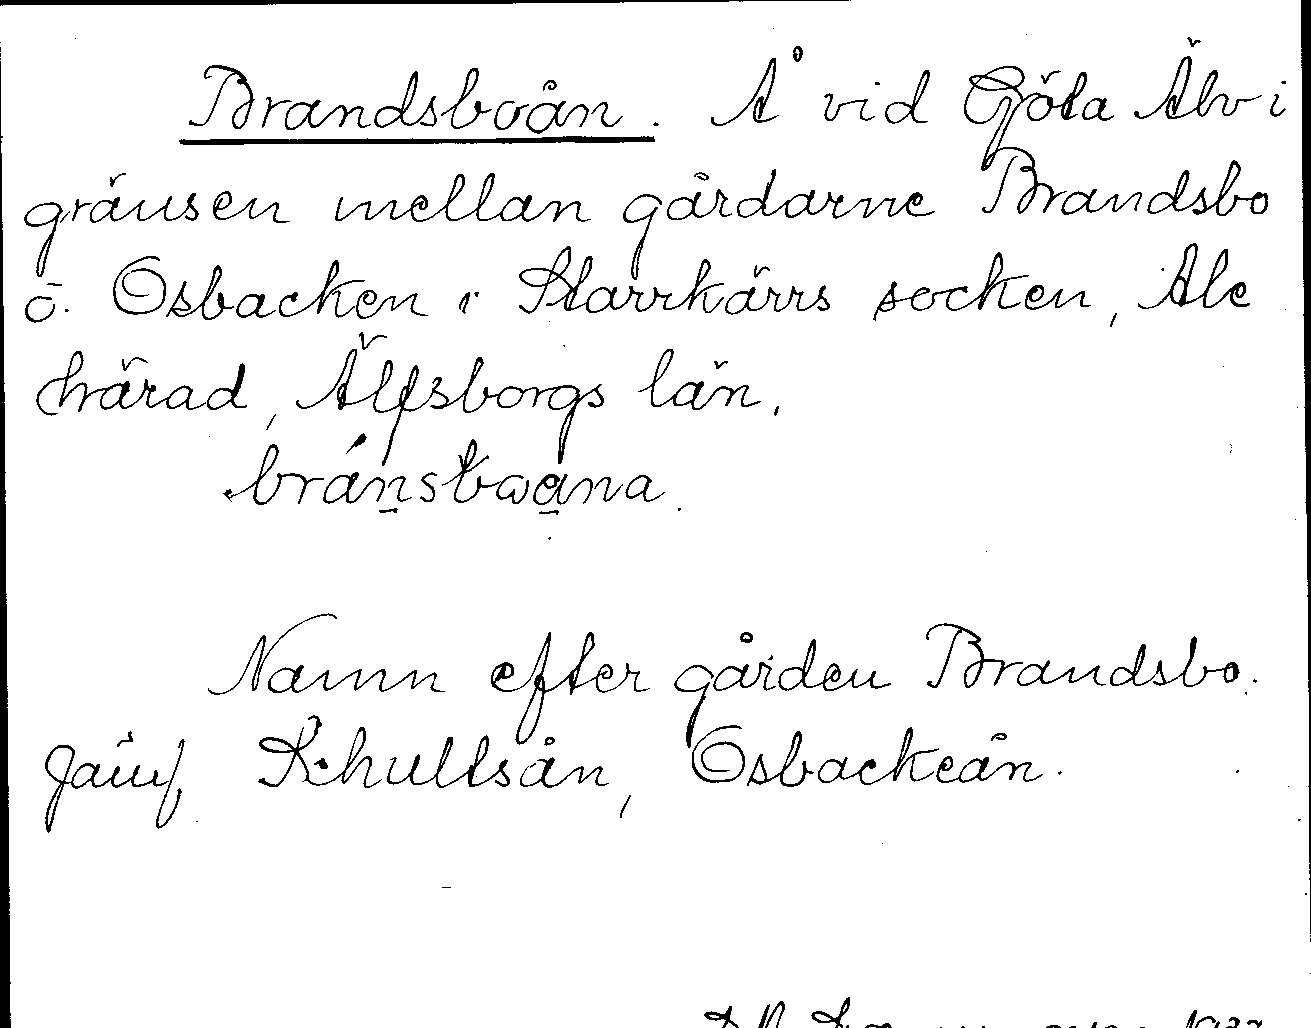 Brandsboån. Å vid Göta Älv i
gränsen mellan gårdarne Brandsbo
o. Osbacken i Starrkärrs socken, Ale
härad, Älfsborgs län.
bránstwana.
Namn efter gården Brandsbo.
Jämf. Khultsån, Osbackeån.